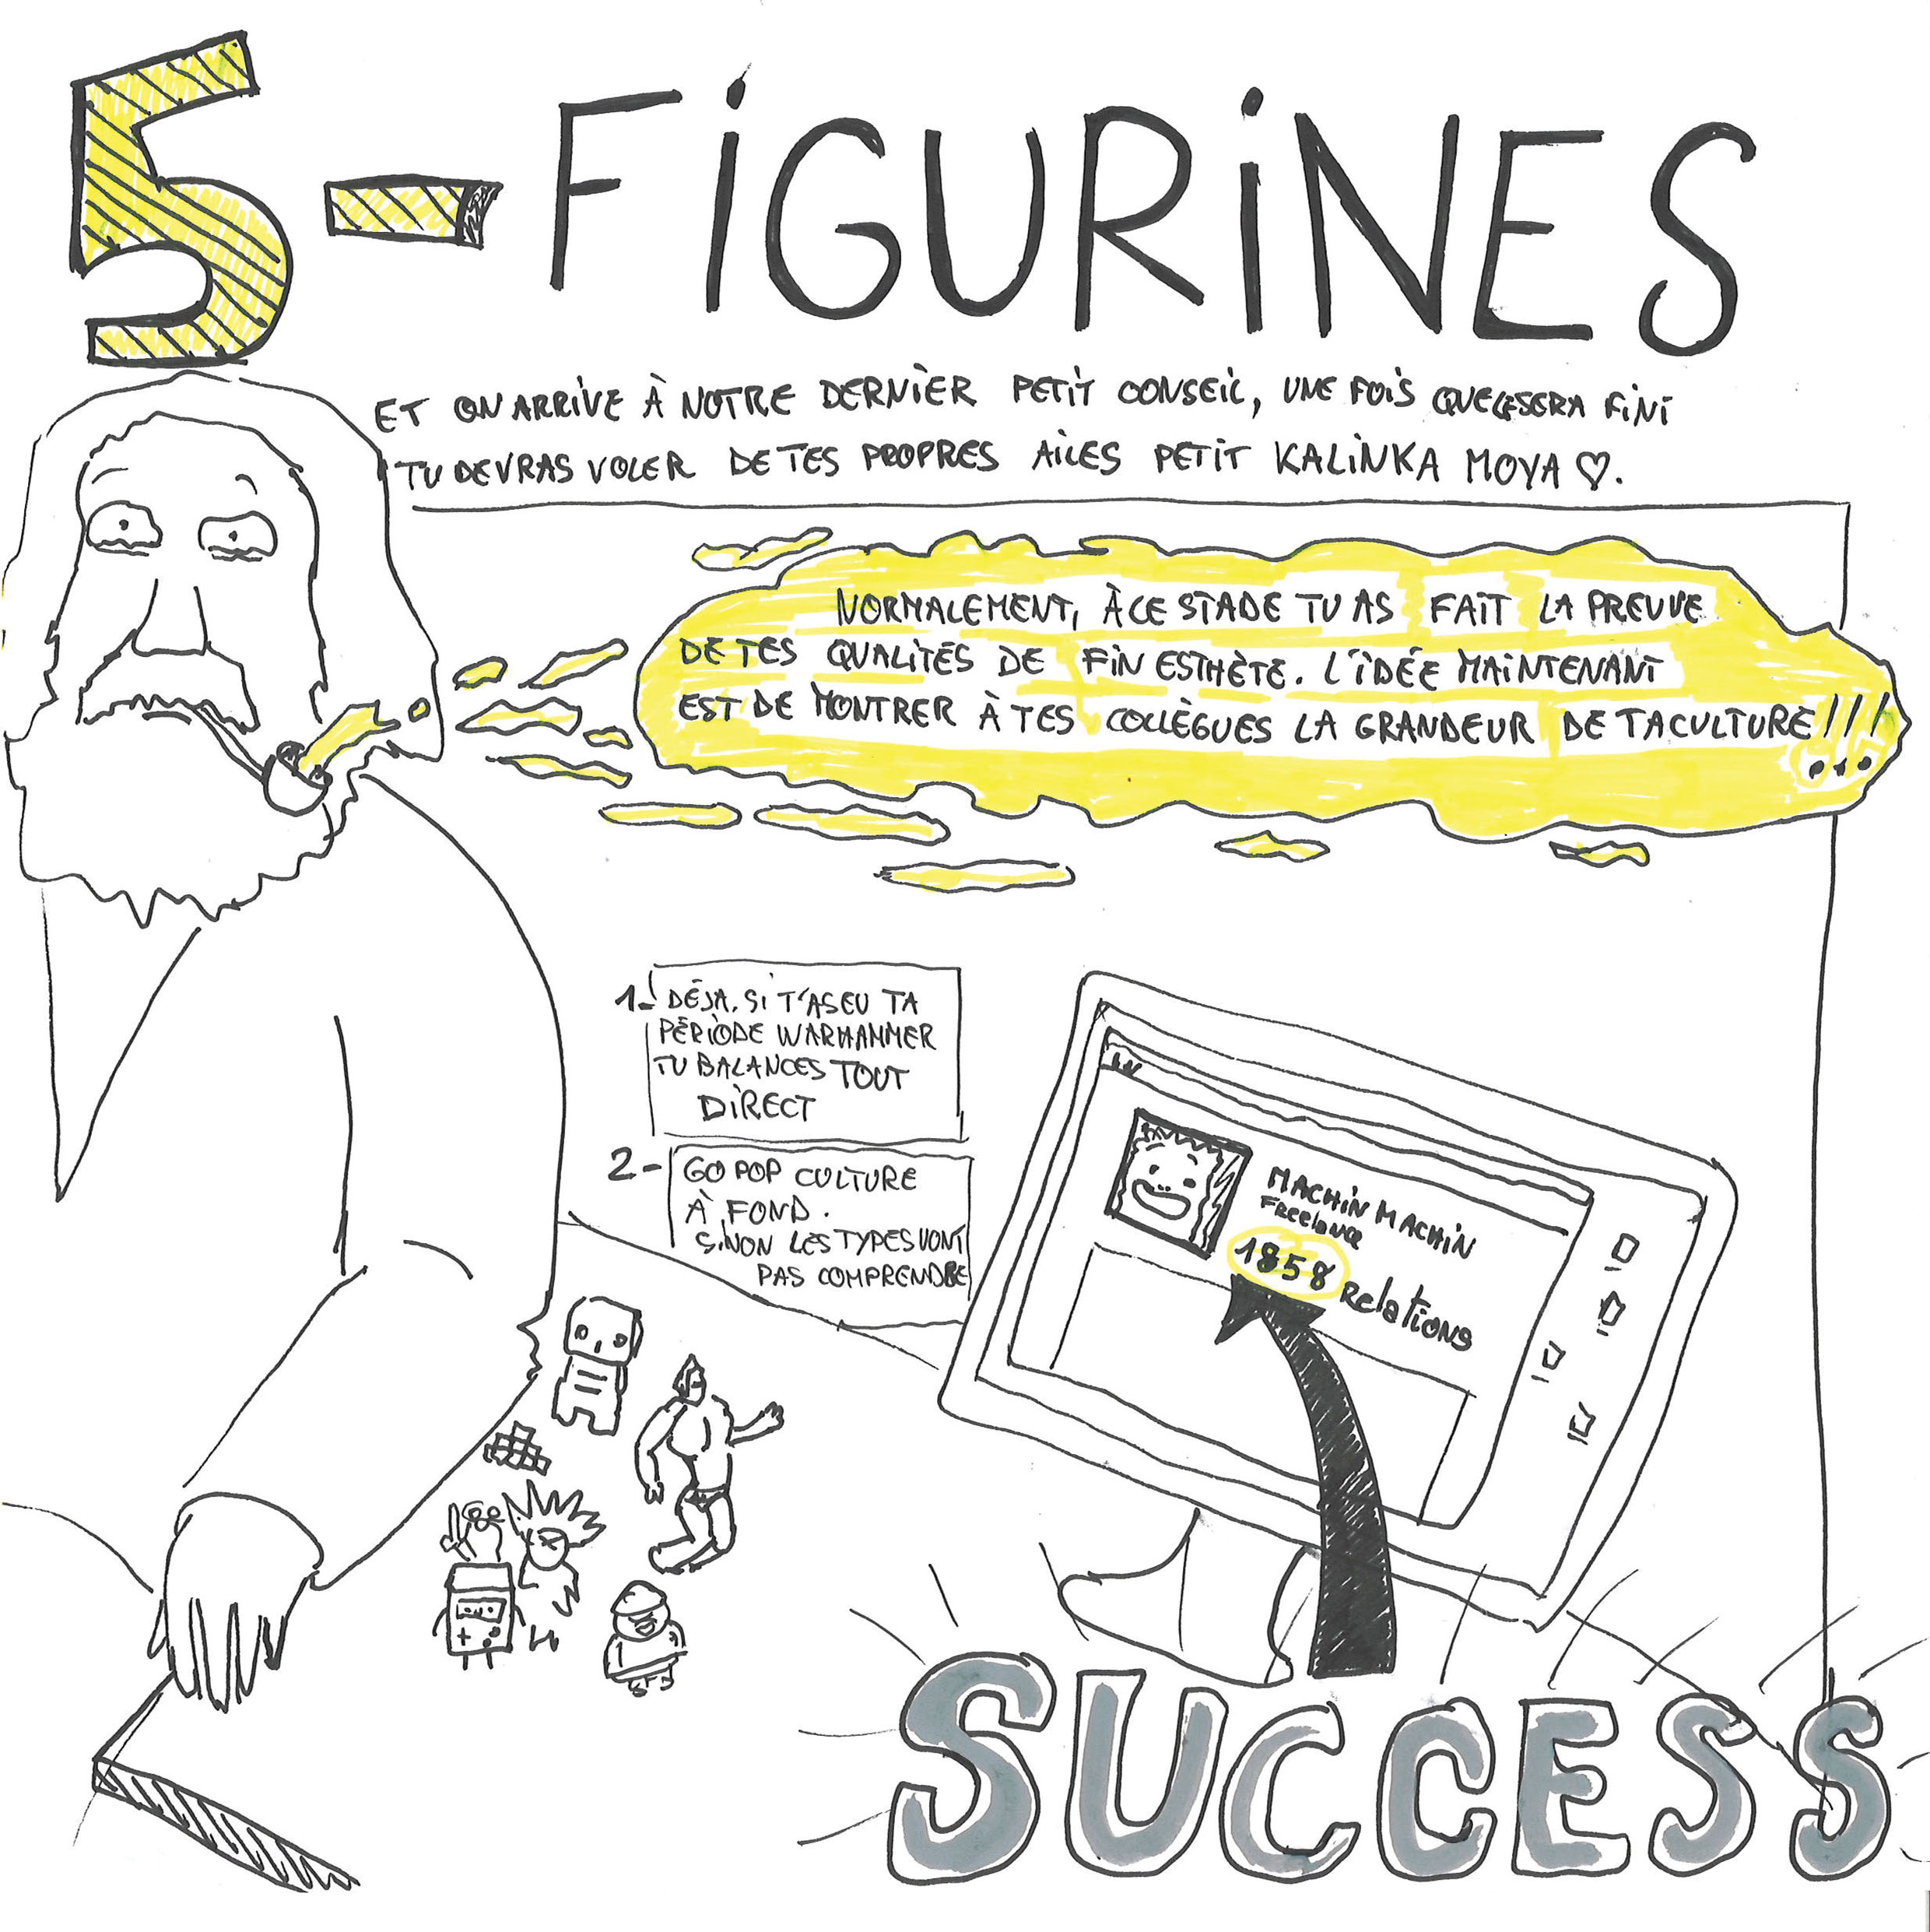 5-FiGURiNES
ET ON ARRIVE À NOTRE DERNIER PETIT CONSEIL, UNE FOIS QUE CE SERA FINI
TU DEVRAS VOLER DE TES PROPRES AILES PETIT KALINKA MOYA ♡.
NORMALEMENT, À CE STADE TU AS FAIT LA PREUVE
DE TES QUALITÉS DE FIN ESTHÈTE. L'IDÉE MAINTENANT
EST DE MONTRER À TES COLLÈGUES LA GRANDEUR DE TA CULTURE!!!
...
1- DÉJA, SI T'AS EU TA
PÉRIODE WARHAMMER
TU BALANCES TOUT
DIRECT
2- GO POP CULTURE
À FOND.
SINON LES TYPES VONT
PAS COMPRENDRE
MACHIN MACHIN
Freelance
1858 Relations
SUCCESS